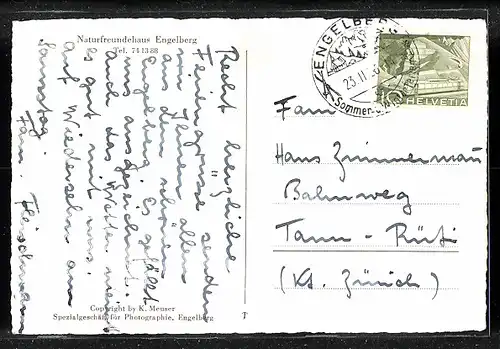 Naturfreundehaus Engelberg
Tel. 74 13 88
Recht herzliche
Feriengrüsse senden
wir Ihnen allen
aus dem schönen
Engelberg. Es gefällt
uns ausgezeichnet.
auch das Wetter meint
es gut mit uns.
Auf Wiedersehn am
Samstag.
Fam. Fleischmann
Copyright by K. Meuser
Spezialgeschäft für Photographie, Engelberg
T
ENGELBERG
23.II
Sommer
HELVETIA
Fam
Hans Zimmermann
Bahnweg
Tann-Rüti
(Kt. Zürich)